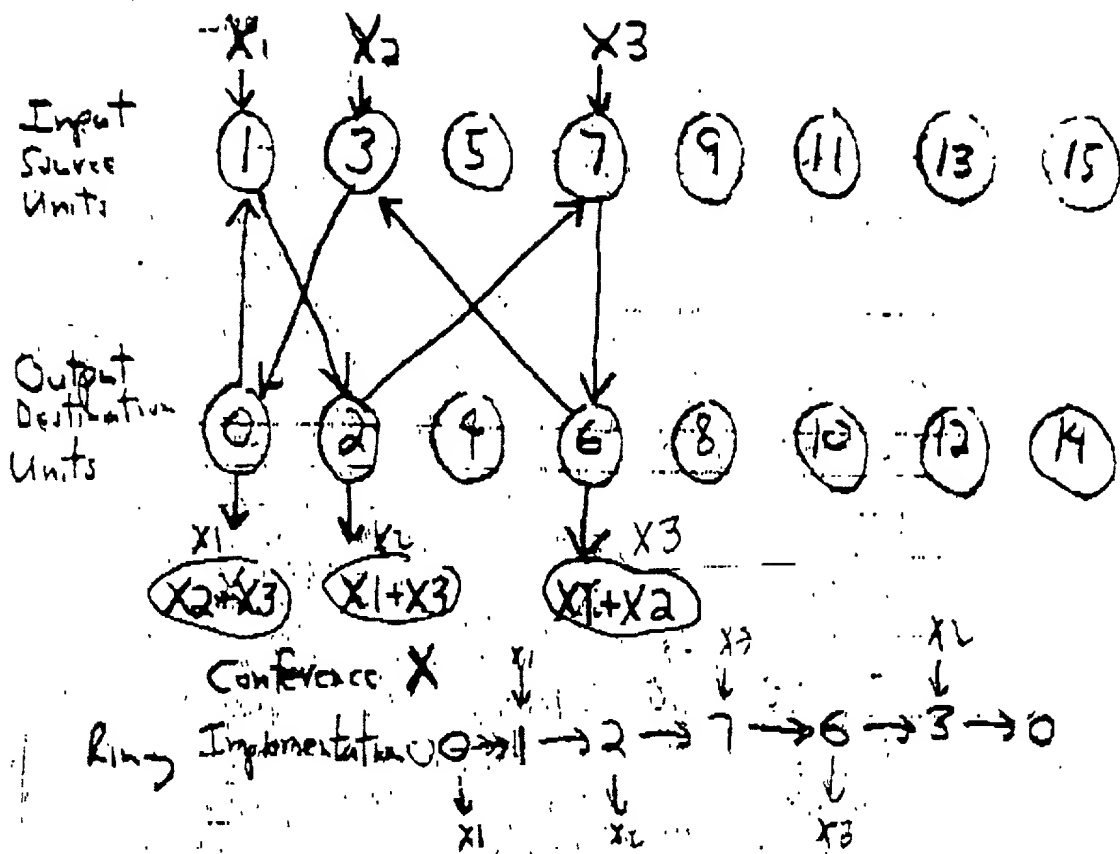 X1 X2 X3
Input
Source
Units
1 3 5 7 9 11 13 15
Output
Destination
Units
0 2 4 6 8 10 12 14
X1 X2 X3
X2+X3 X1+X3 X1+X2
Conference X
X1 X3 X2
Ring Implmentation 0 → 1 → 2 → 7 → 6 → 3 → 0
X1 X2 X3